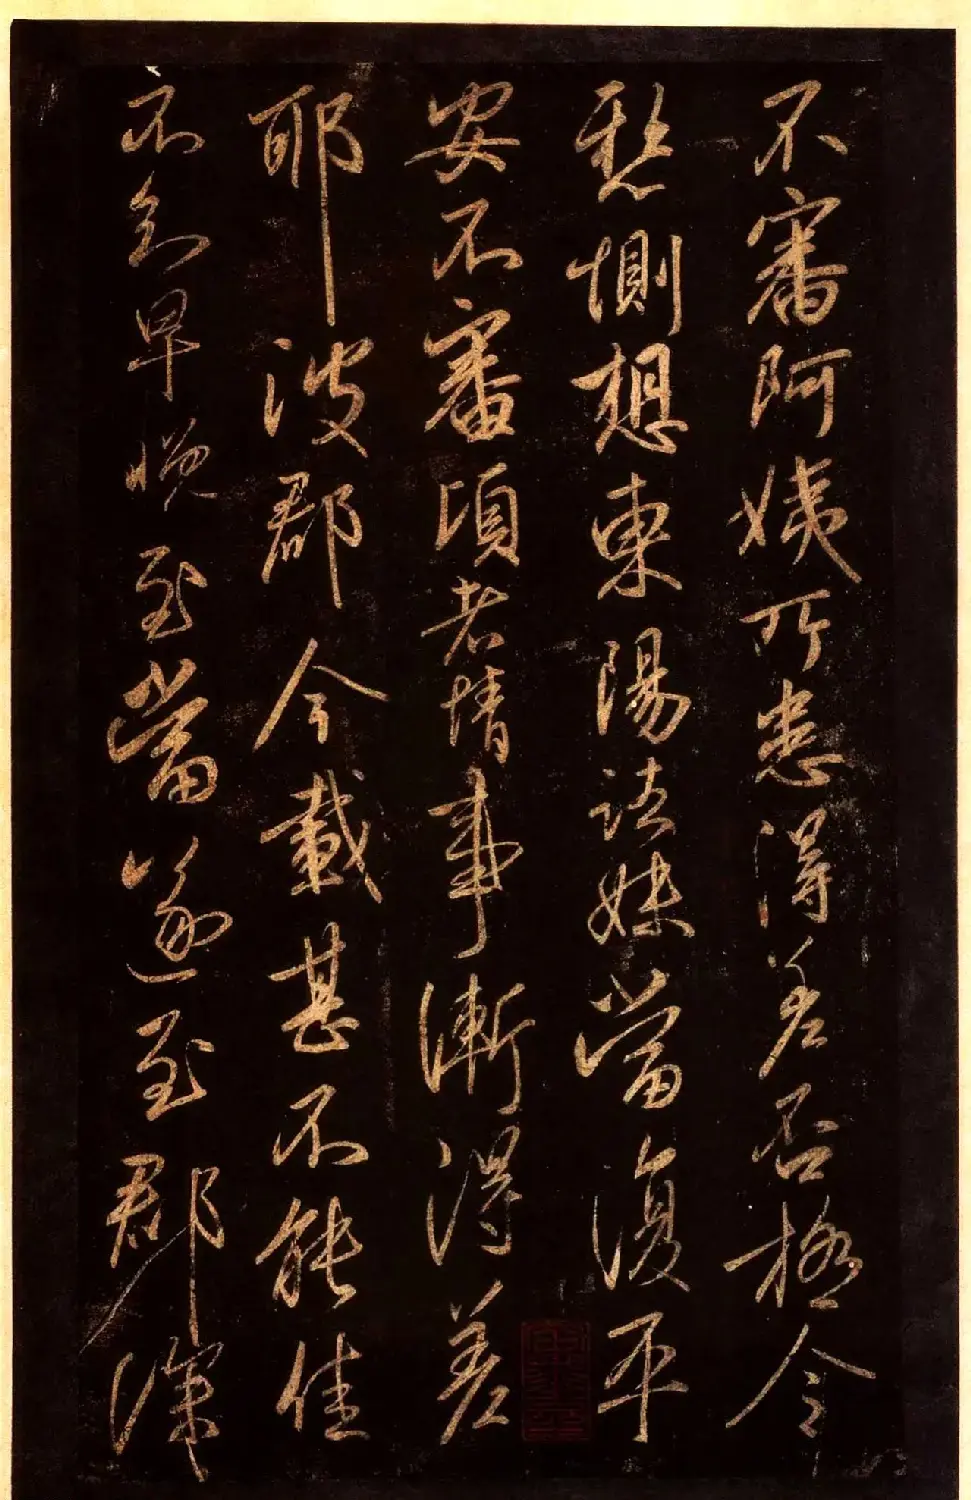 不審阿姨所患得差否極令
愁惻想東陽諸妹當復平
安不審頃者情事漸得差
耶彼郡今載甚不能佳
不知早晚至當遂至郡深